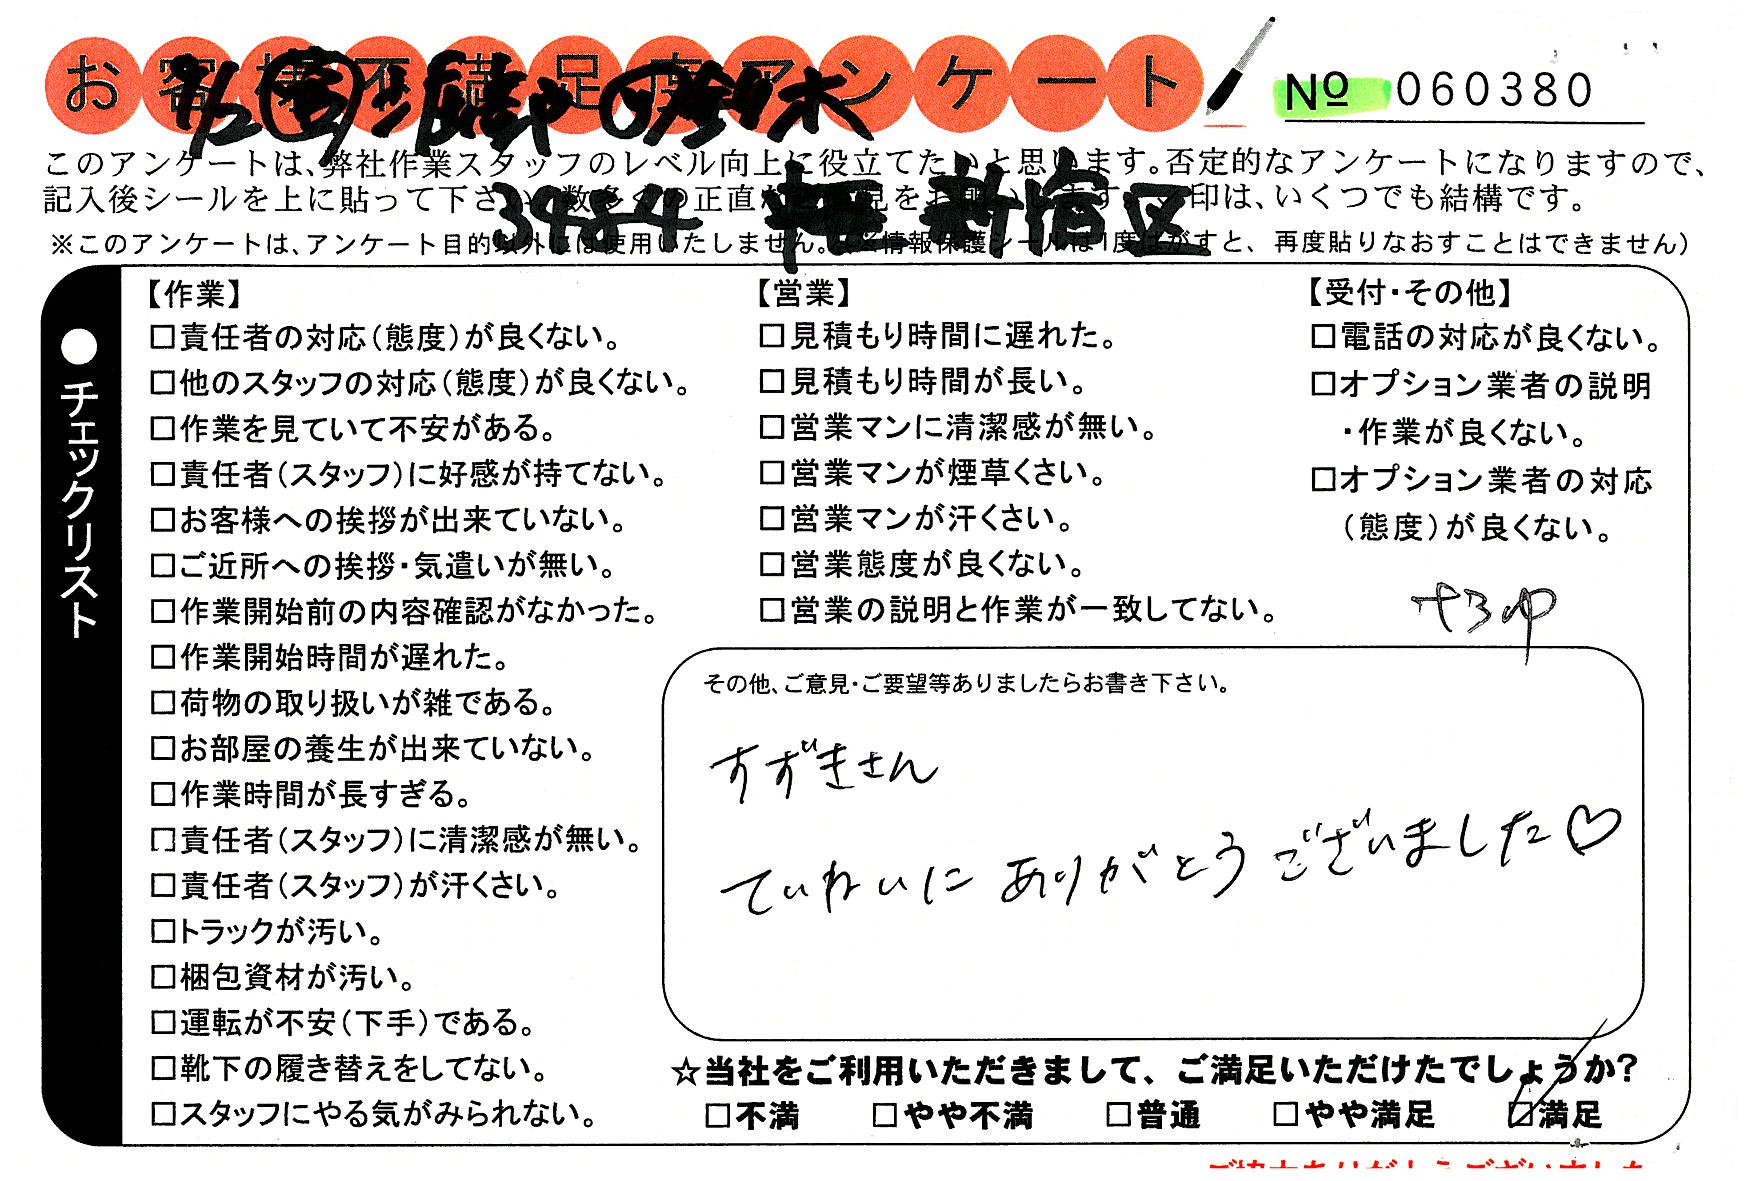 お客様不満足度アンケート
№ 060380
このアンケートは、弊社作業スタッフのレベル向上に役立てたいと思います。否定的なアンケートになりますので、
記入後シールを上に貼って下さい。数多くの正直な 見をお 印は、いくつでも結構です。
3984 新宿区
※このアンケートは、アンケート目的以外には使用いたしません。(※情報保護シールは1度はがすと、再度貼りなおすことはできません)
●チェックリスト
【作業】
□責任者の対応(態度)が良くない。
□他のスタッフの対応(態度)が良くない。
□作業を見ていて不安がある。
□責任者(スタッフ)に好感が持てない。
□お客様への挨拶が出来ていない。
□ご近所への挨拶・気遣いが無い。
□作業開始前の内容確認がなかった。
□作業開始時間が遅れた。
□荷物の取り扱いが雑である。
□お部屋の養生が出来ていない。
□作業時間が長すぎる。
□責任者(スタッフ)に清潔感が無い。
□責任者(スタッフ)が汗くさい。
□トラックが汚い。
□梱包資材が汚い。
□運転が不安(下手)である。
□靴下の履き替えをしてない。
□スタッフにやる気がみられない。
【営業】
□見積もり時間に遅れた。
□見積もり時間が長い。
□営業マンに清潔感が無い。
□営業マンが煙草くさい。
□営業マンが汗くさい。
□営業態度が良くない。
□営業の説明と作業が一致してない。
【受付・その他】
□電話の対応が良くない。
□オプション業者の説明
・作業が良くない。
□オプション業者の対応
(態度)が良くない。
その他、ご意見・ご要望等ありましたらお書き下さい。
すずきさん
ていねいに ありがとうございました♡
☆当社をご利用いただきまして、ご満足いただけたでしょうか?
□不満 □やや不満 □普通 □やや満足 ☑満足
ご協力ありがとうございました